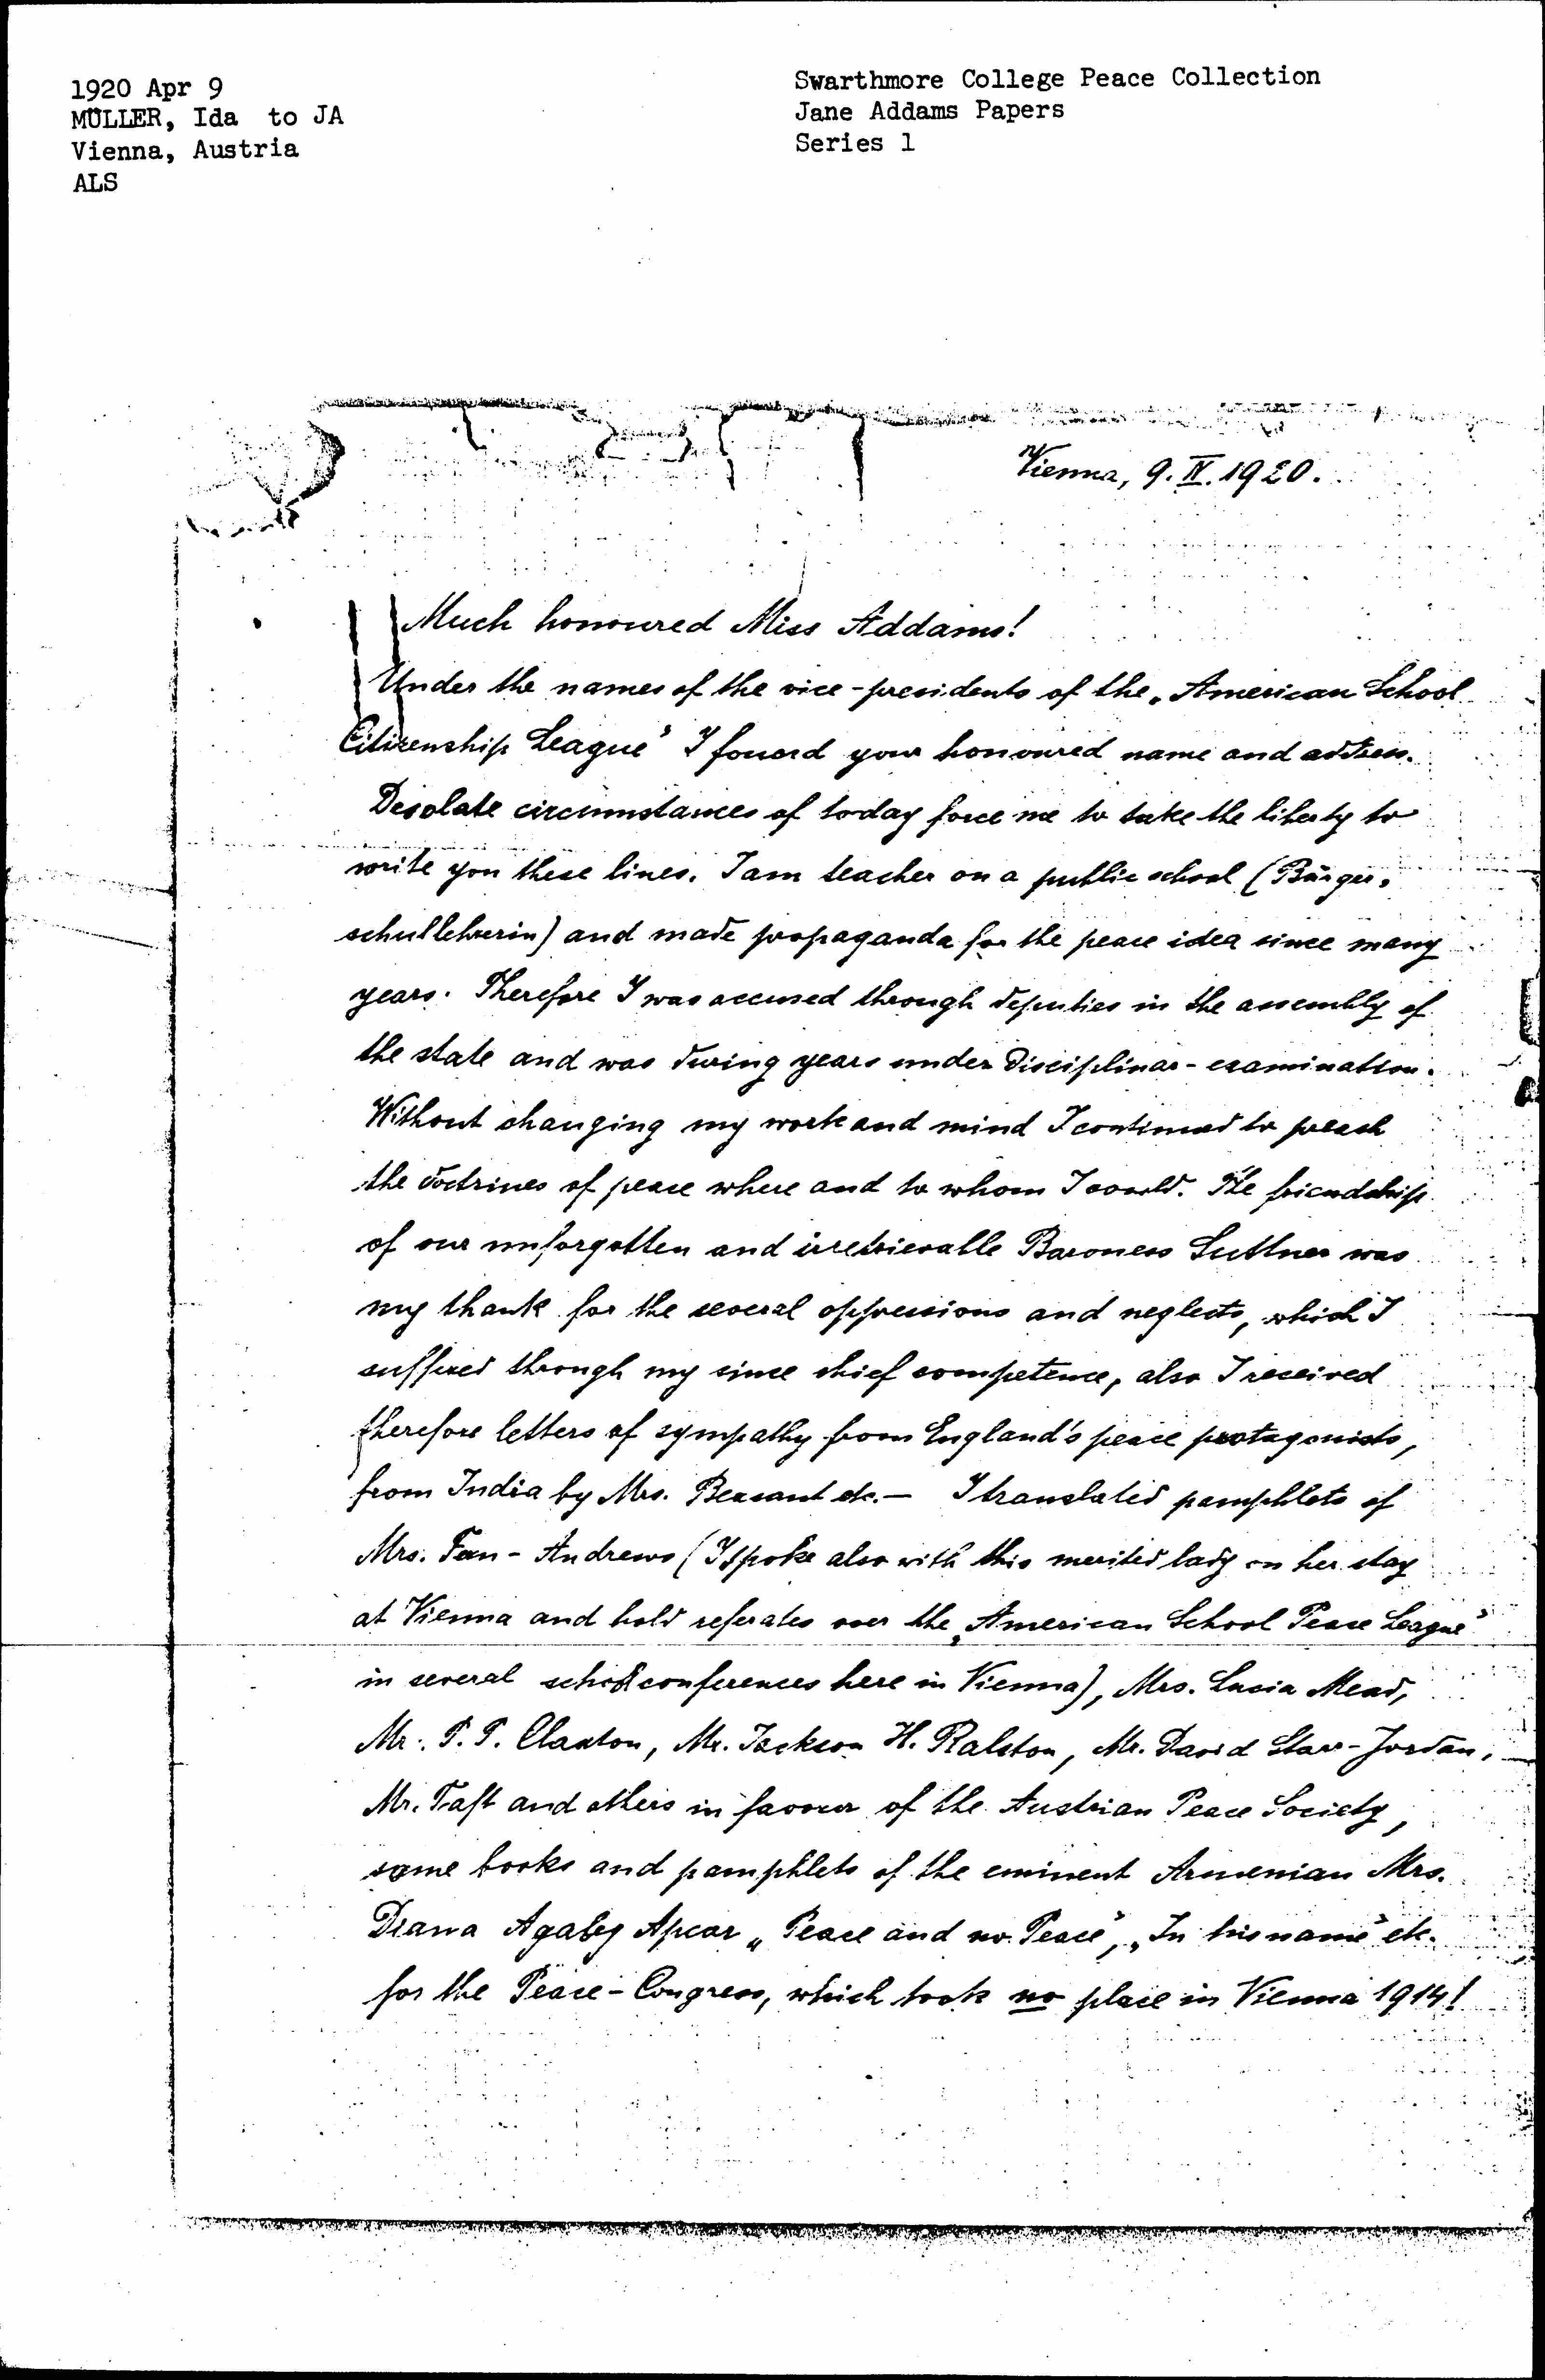 1920 Apr 9
MÜLLER, Ida to JA
Vienna, Austria
ALS
Swarthmore College Peace Collection
Jane Addams Papers
Series 1
Vienna, 9. IV. 1920.
Much honoured Miss Addams!
Under the names of the vice-presidents of the „American School
Citizenship League" I found your honoured name and address.
Desolate circumstances of today force me to take the liberty to
write you these lines. I am teacher on a public school (Bürger-
schullehrerin) and made propaganda for the peace idea since many
years. Therefore I was accused through deputies in the assembly of
the state and was during years under disciplinar-examination.
Without changing my work and mind I continued to preach
the doctrines of peace where and to whom I could. The friendship
of our unforgotten and irretrievable Baroness Suttner was
my thank for the several oppressions and neglects, which I
suffered through my since chief competence, also I received
therefore letters of sympathy from England's peace protagonists,
from India by Mrs. Beasant etc. — I translated pamphlets of
Mrs. Fan-Andrews (I spoke also with this merited lady on her stay
at Vienna and hold referates over the „American School Peace League"
in several school conferences here in Vienna), Mrs. Lucia Mead,
Mr. P. P. Claxton, Mr. Jackson H. Ralston, Mr. David Starr-Jordan,
Mr. Taft and others in favour of the Austrian Peace Society,
some books and pamphlets of the eminent Armenian Mrs.
Diana Agabeg Apcar „Peace and no Peace", „In his name" etc.
for the Peace-Congress, which took no place in Vienna 1914!